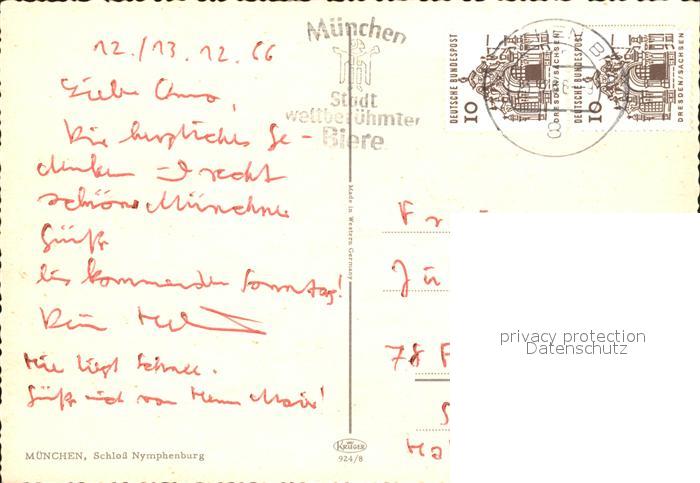 12./13. 12. 66
Liebe
Dir herzliches Ge-
denken & recht
schöne Münchner
Grüße
bis kommenden Sonntag!
Dein
Hier liegt Schnee.
Grüße auch von Herrn
München
Stadt
weltberühmter
Biere
DEUTSCHE BUNDESPOST
10
DRESDEN/SACHSEN
DEUTSCHE BUNDESPOST
10
DRESDEN/SACHSEN
Made in Western Germany
Fr
Jü
78 F
S
Ha
privacy protection
Datenschutz
KRÜGER
924/8
MÜNCHEN, Schloß Nymphenburg